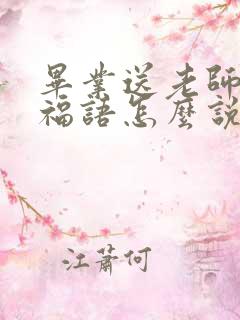 畢業送老師
福語怎麼說
江蕭何